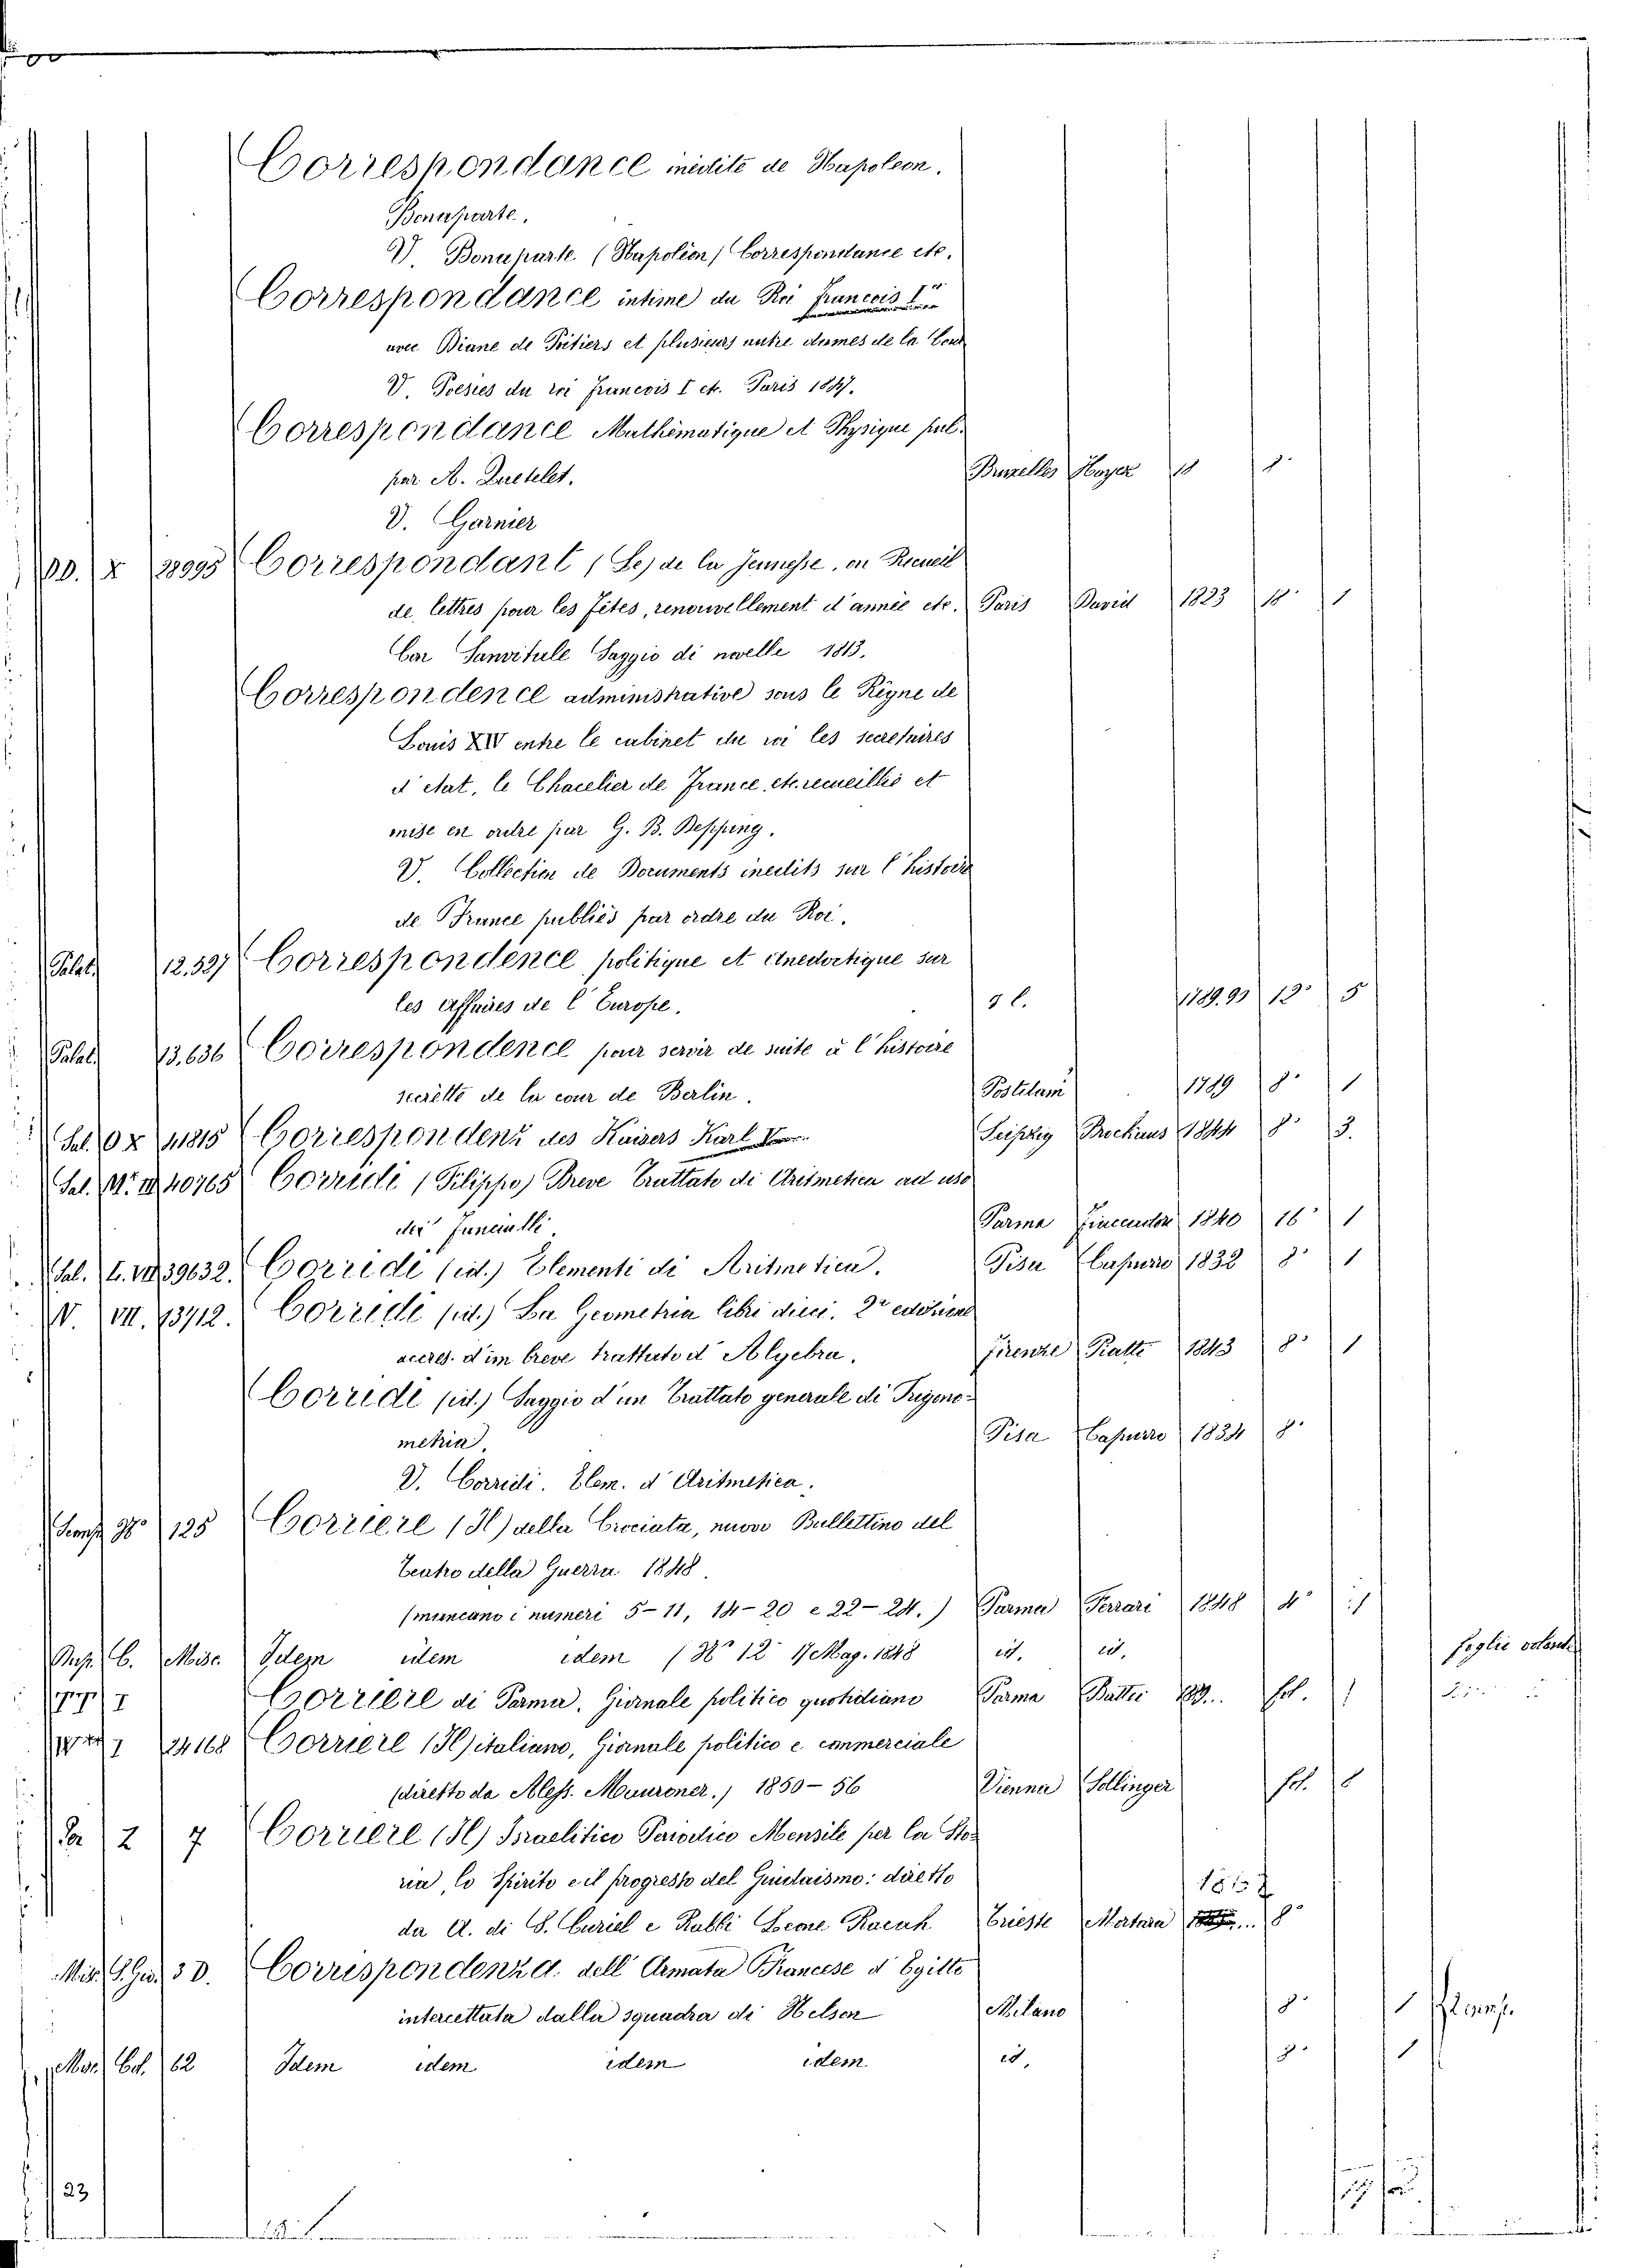 Correspondance inédite de Napoleon.
Bonaparte.
V. Bonaparte (Napoléon) Correspondance etc.
Correspondance intime du Roi Francois Ier
avec Diane de Poitiers et plusieurs autre dames de la Cour
V. Poesies du roi Francois I etc. Paris 1847.
Correspondance Mathématique et Physique pub.
par A. Quetelet. Bruxelles Hayez 18 8°
V. Garnier
DD. X 28995 Correspondant (Le) de la Jeunesse, ou Recueil
de lettres pour les fêtes, renouvellement d'année etc. Paris David 1823 18° 1
Con Sanvitale Saggio di novelle 1813.
Correspondence administrative sous le Règne de
Louis XIV entre le cabinet du roi les secretaires
d'etat, le Chacelier de France etc. recueillié et
mise en ordre par G. B. Depping.
V. Collection de Documents inedits sur l'histoire
de France publiés par ordre du Roi.
Palat. 12.597 Correspondence politique et anedoctique sur
les affaires de l'Europe. s l. 1789.93 12° 5
Palat. 13.636 Correspondence pour servir de suite à l'histoire
secrètte de la cour de Berlin. Postdam 1789 8° 1
Sal. O X 41815 Correspondenz des Kaisers Karl V Leipzig Brockaus 1844 8° 3.
Sal. M. III 40765 Corridi (Filippo) Breve Trattato di Aritmetica ad uso
dei fanciulli. Parma Fiaccadori 1840 16° 1
Sal. L. VII 39632. Corridi (id.) Elementi di Aritmetica. Pisa Capurro 1832 8° 1
V. VII. 13712. Corridi (id.) La Geometria libri dieci. 2ª edizione
accres. d'im breve trattato d'Algebra. Firenze Piatti 1843 8° 1
Corridi (id.) Saggio d'un Trattato generale di Trigono-
metria. Pisa Capurro 1834 8°
V. Corridi. Elem. d'Aritmetica.
125 Corriere (Il) della Crociata, nuovo Bullettino del
Teatro della Guerra 1848.
(mancano i numeri 5-11, 14-20 e 22-24.) Parma Ferrari 1848 4° 1
B. Misc. Idem idem idem (N° 12 17 Mag. 1848 id. id. foglie volante
I Corriere di Parma. Giornale politico quotidiano Parma fol. 1
I 24168 Corriere (Il) italiano, Giornale politico e commerciale
(diretto da Aless. Mauroner.) 1850-56 Vienna Sollinger fol. 8
2 7 Corriere (Il) Israelitico Periodico Mensile per la Sto-
ria, lo Spirito e il progresso del Giudaismo: diretto
da A. di S. Curiel e Rabbi Leone Racah Trieste 1867 8°
3 D. Corrispondenza dell'Armata Francese d'Egitto
intercettata dalla squadra di Nelson Milano 8° 1
62 Idem idem idem idem id. 8° 1
23